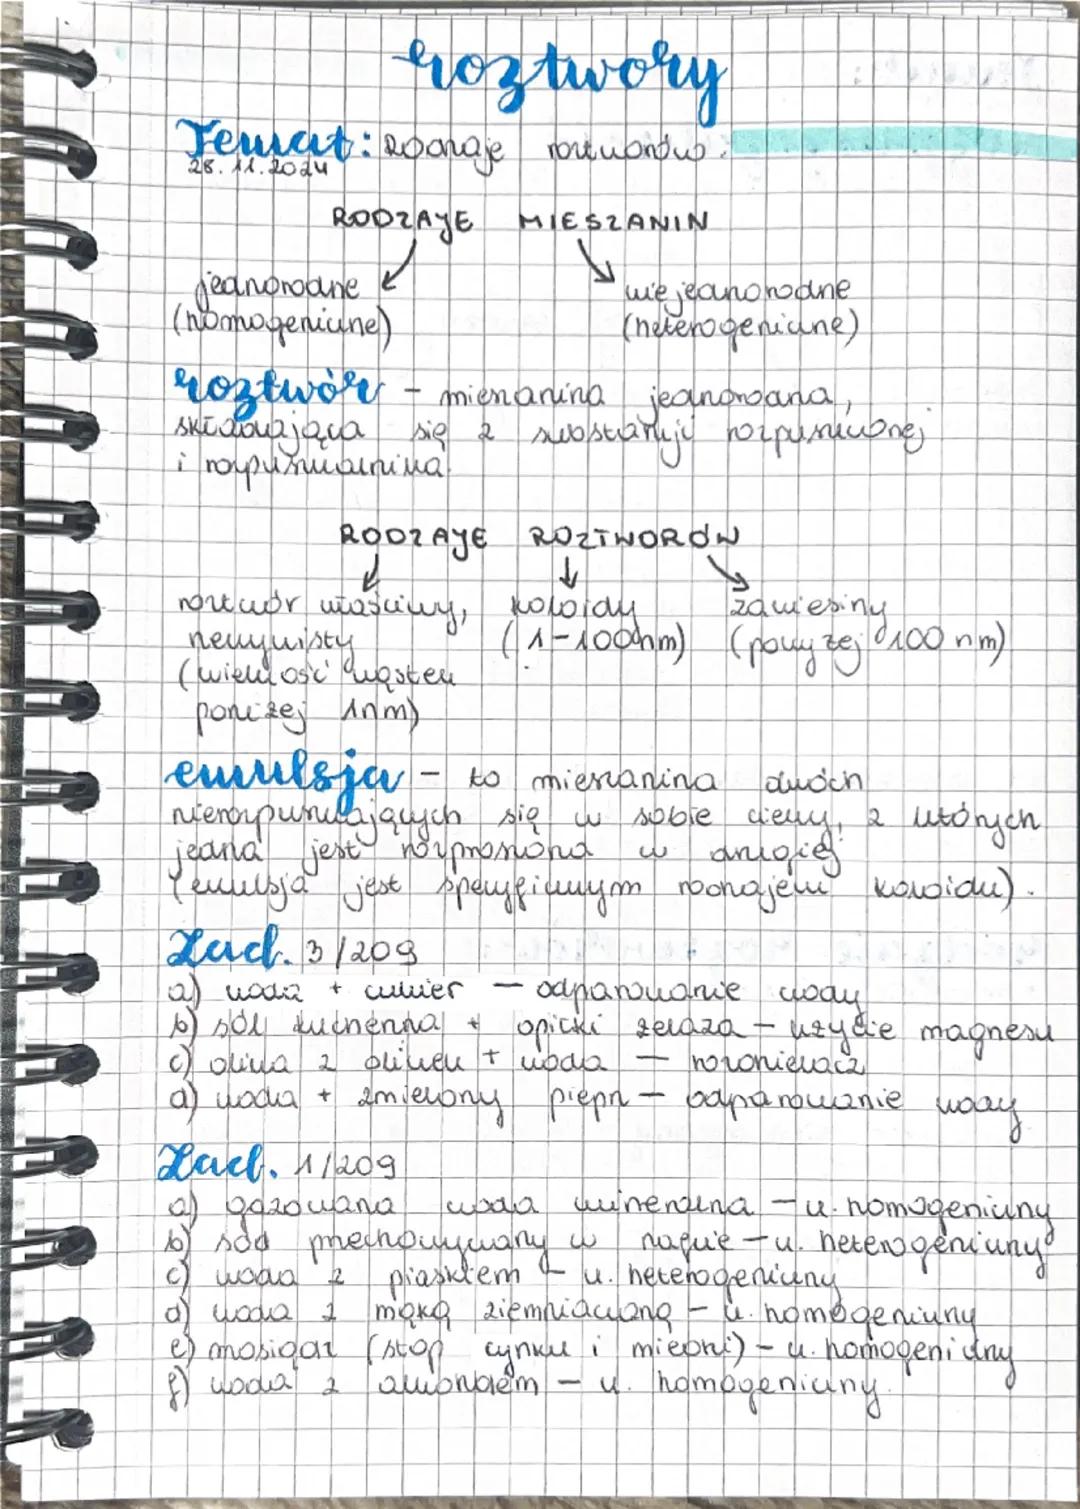 roztwory
Temat: Rodzaje roztworów.
28.11.2024
RODZAJE MIESZANIN
jednorodne niejednorodne
(homogeniczne) (heterogeniczne)
roztwór - mieszanina jednorodna,
składająca się z substancji rozpuszczonej
i rozpuszczalnika.
RODZAJE ROZTWORÓW
roztwór właściwy, koloidy zawiesiny
rzeczywisty (1-100nm) (powyżej 100 nm)
(wielkość cząstek
poniżej 1nm)
emulsja - to mieszanina dwóch
nierozpuszczających się w sobie cieczy, z których
jedna jest rozproszona w drugiej
(emulsja jest specyficznym rodzajem koloidu).
Zad. 3/209
a) woda + cukier - odparowanie wody
b) sól kuchenna + opiłki żelaza - użycie magnesu
c) oliwa z oliwek + woda - rozdzielacz
d) woda + zmielony pieprz - odparowanie wody
Zad. 1/209
a) gazowana woda mineralna - u. homogeniczny
b) sód przechowywany w nafcie - u. heterogeniczny
c) woda z piaskiem - u. heterogeniczny
d) woda z mąką ziemniaczaną - u. homogeniczny
e) mosiądz (stop cynku i miedzi) - u. homogeniczny
f) woda z etanolem - u. homogeniczny.